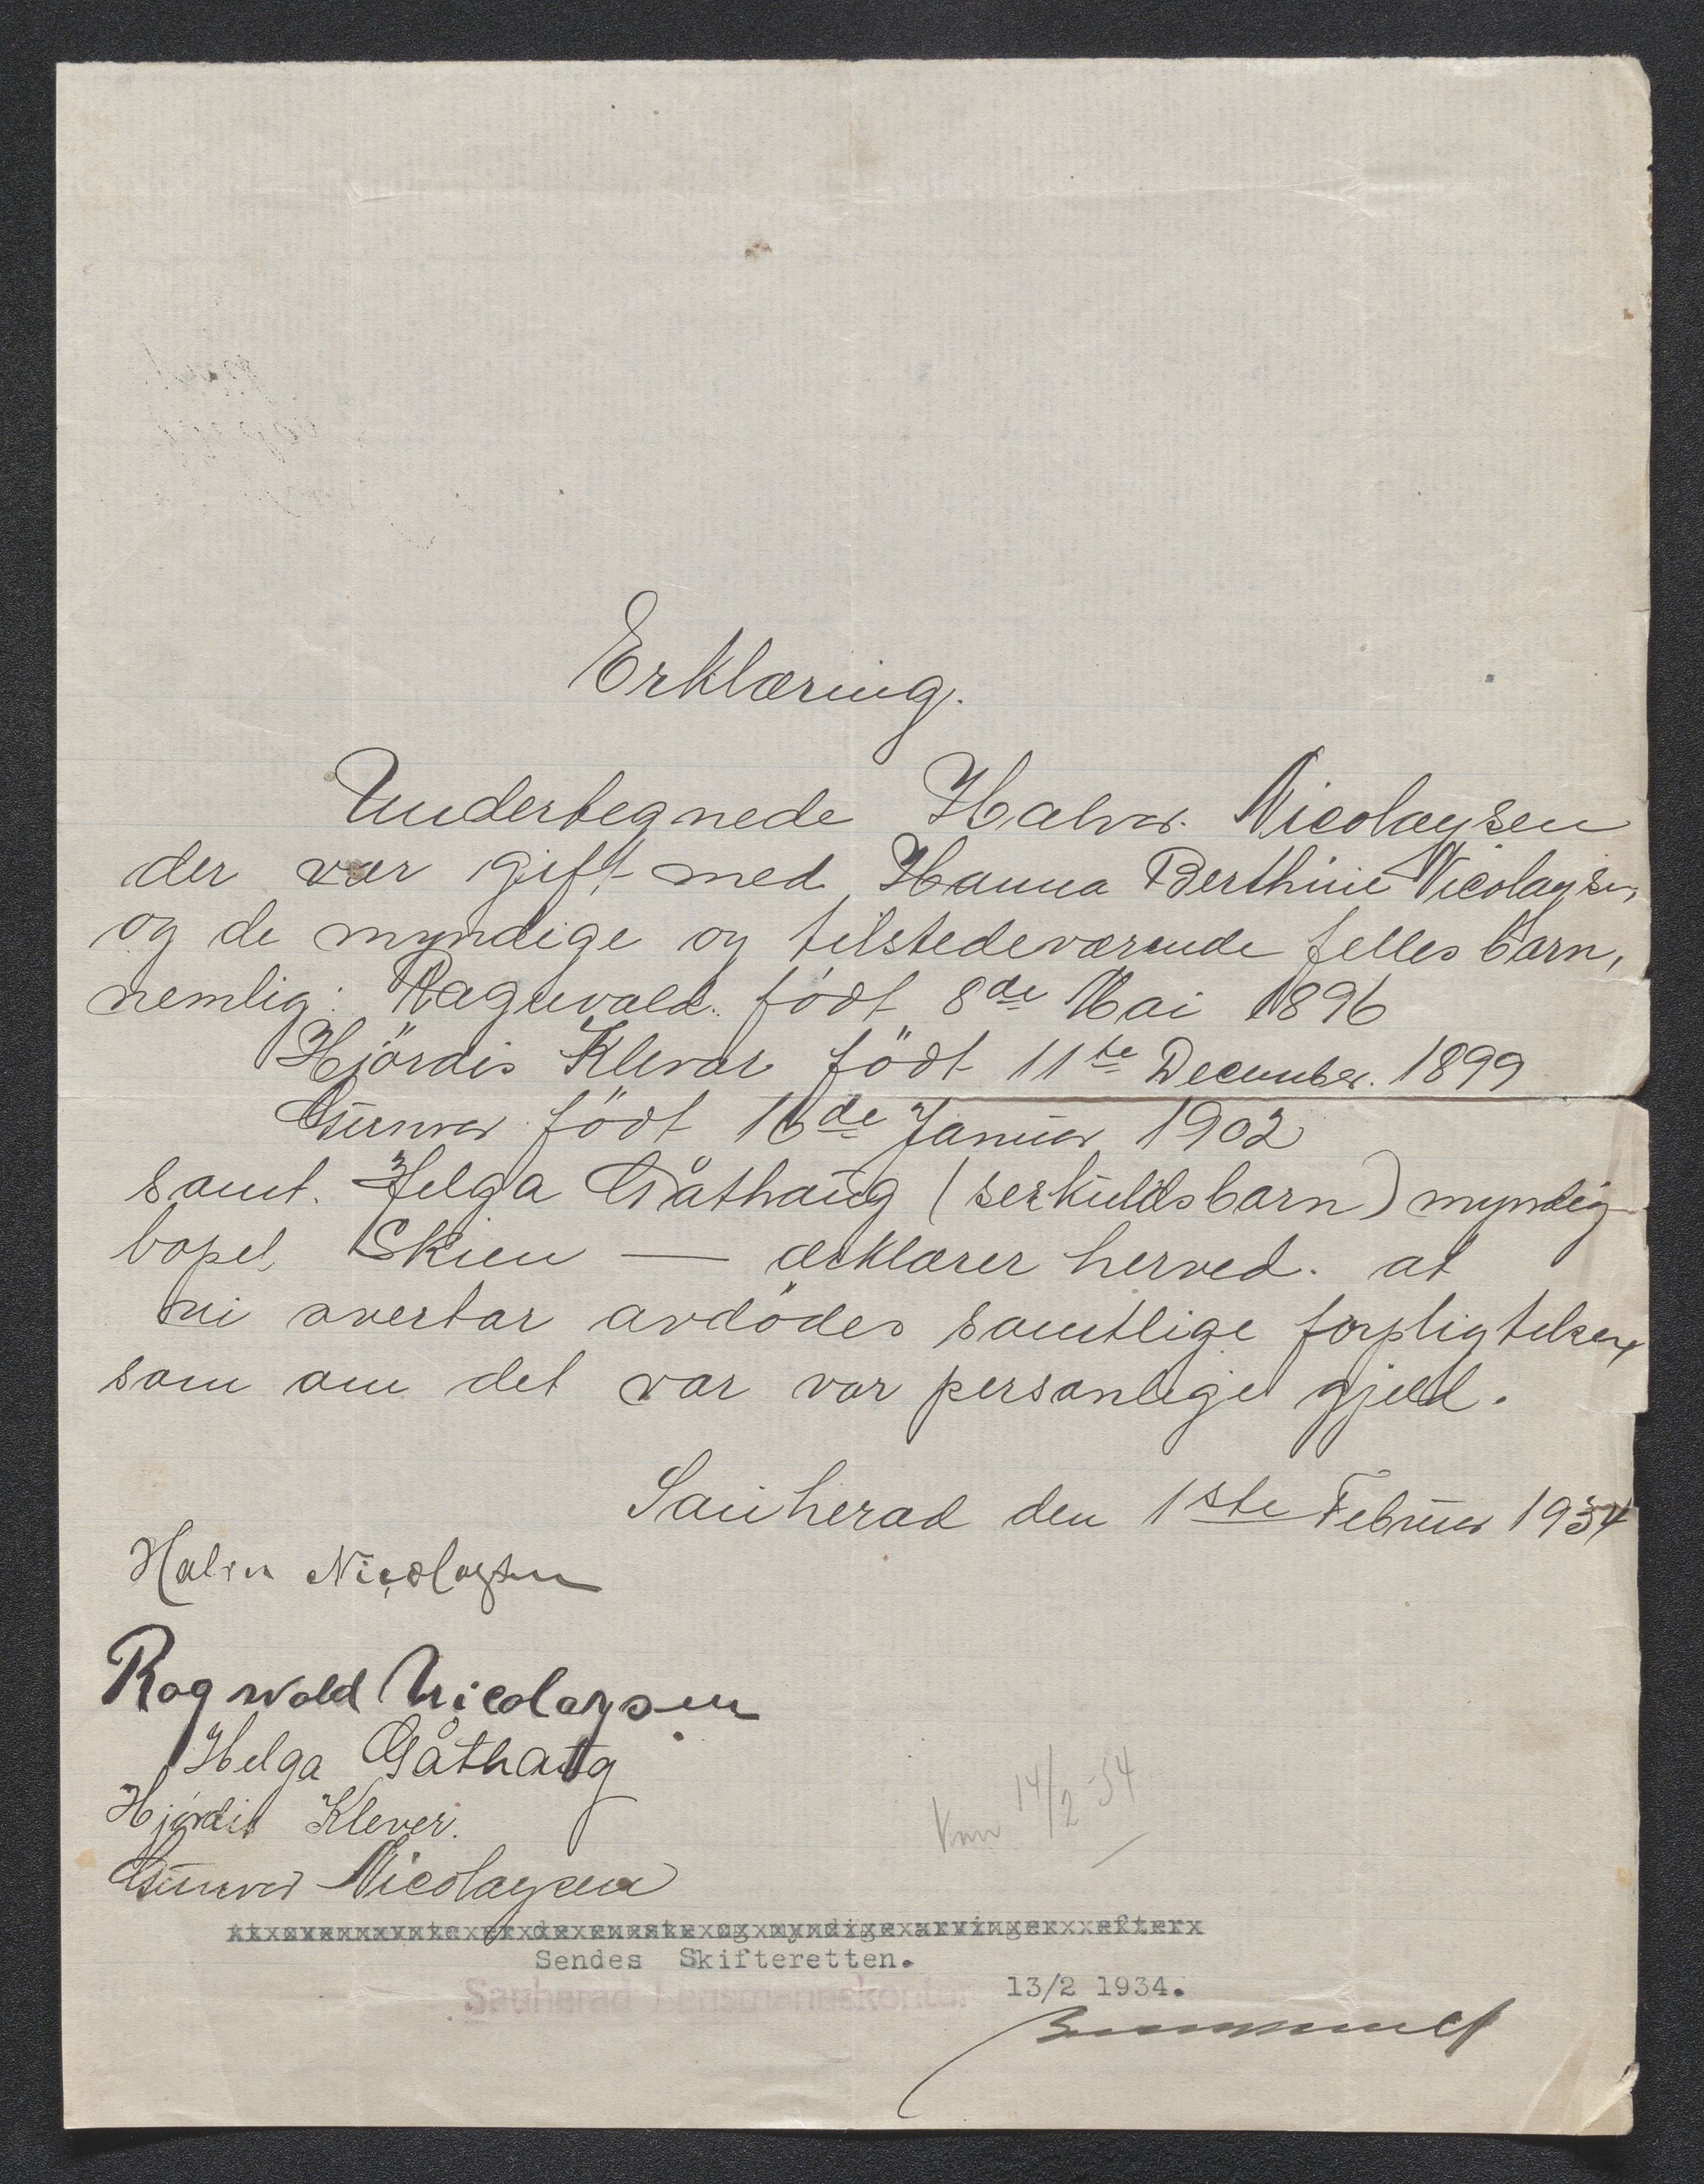 Erklæring.
Undertegnede Halvor Nicolaysen
der var gift med Hanna Berthine Nicolaysen,
og de myndige og tilstedeværende felles barn,
nemlig: Ragnvald. født 8de Mai 1896
Hjördis Klevar född 11te December. 1899
Gunvor född 16de Januar 1902
samt. Helga Gåthaug (serkuldsbarn) myndig
bopel, Skien — erklærer herved. at
vi overtar avdödes samtlige forpligtelser,
som om det var vor personlige gjeld.
Sauherad den 1ste Februar 1934
Halvor Nicolaysen
Ragnvald Nicolaysen
Helga Gåthaug
Hjördis Klever.
Gunvor Nicolaysen
14/2-34
At ovennevnte er de eneste og myndige arvinger efter
Sendes Skifteretten.
Sauherad Lensmannskontor 13/2 1934.